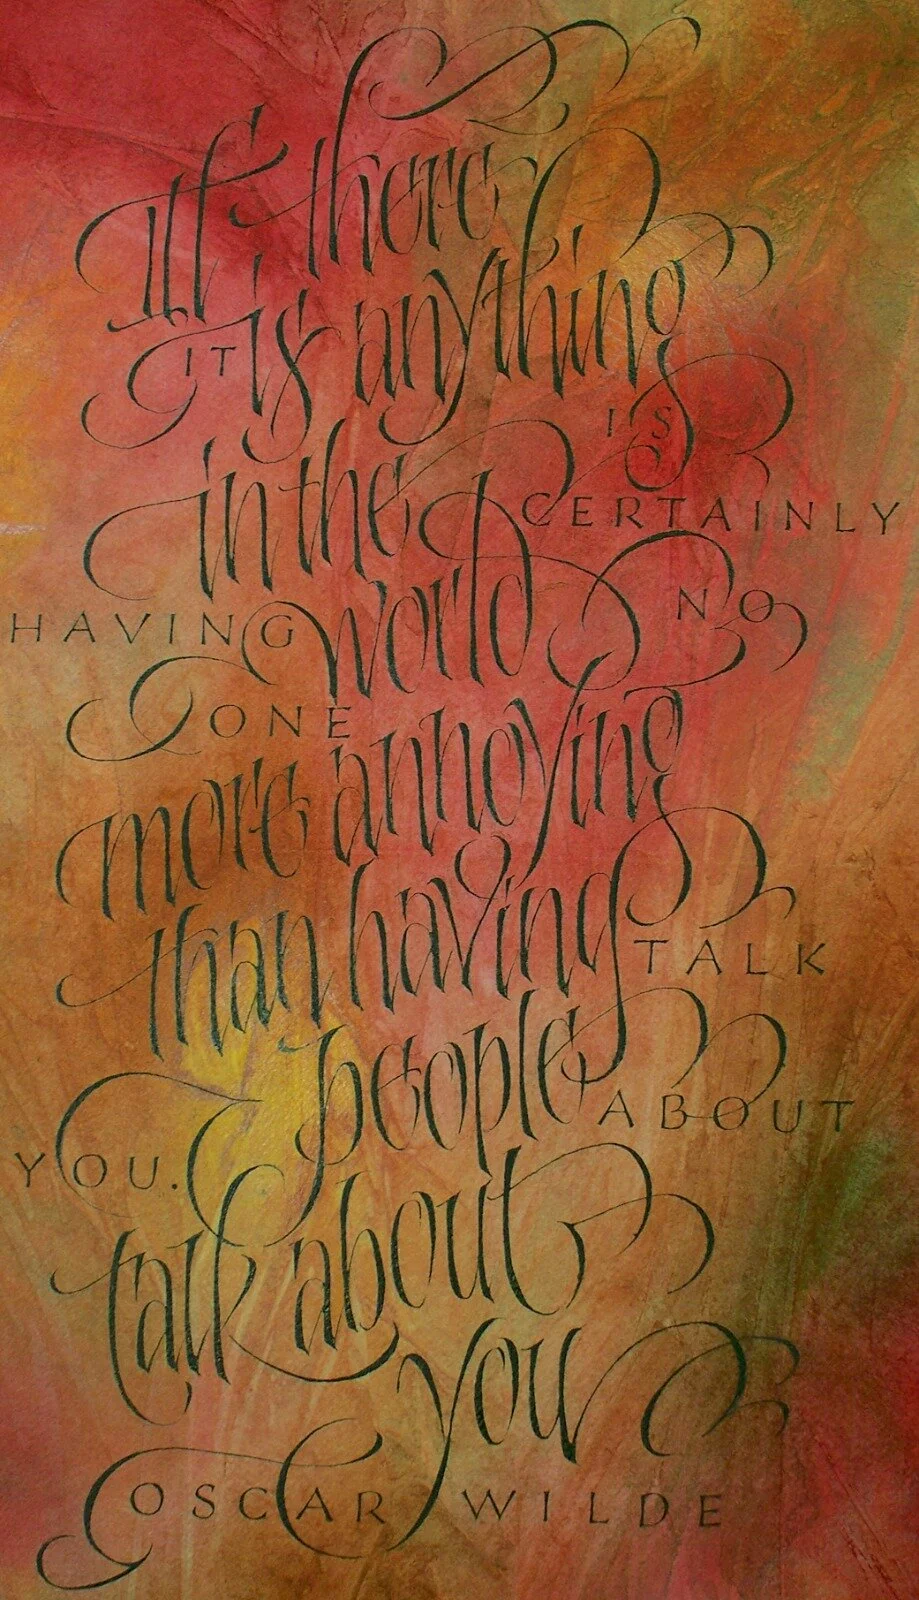 If there
is anything
IT
IS
in the
CERTAINLY
world
NO
HAVING
ONE
more annoying
than having
TALK
people
ABOUT
YOU.
talk about
you
OSCAR WILDE